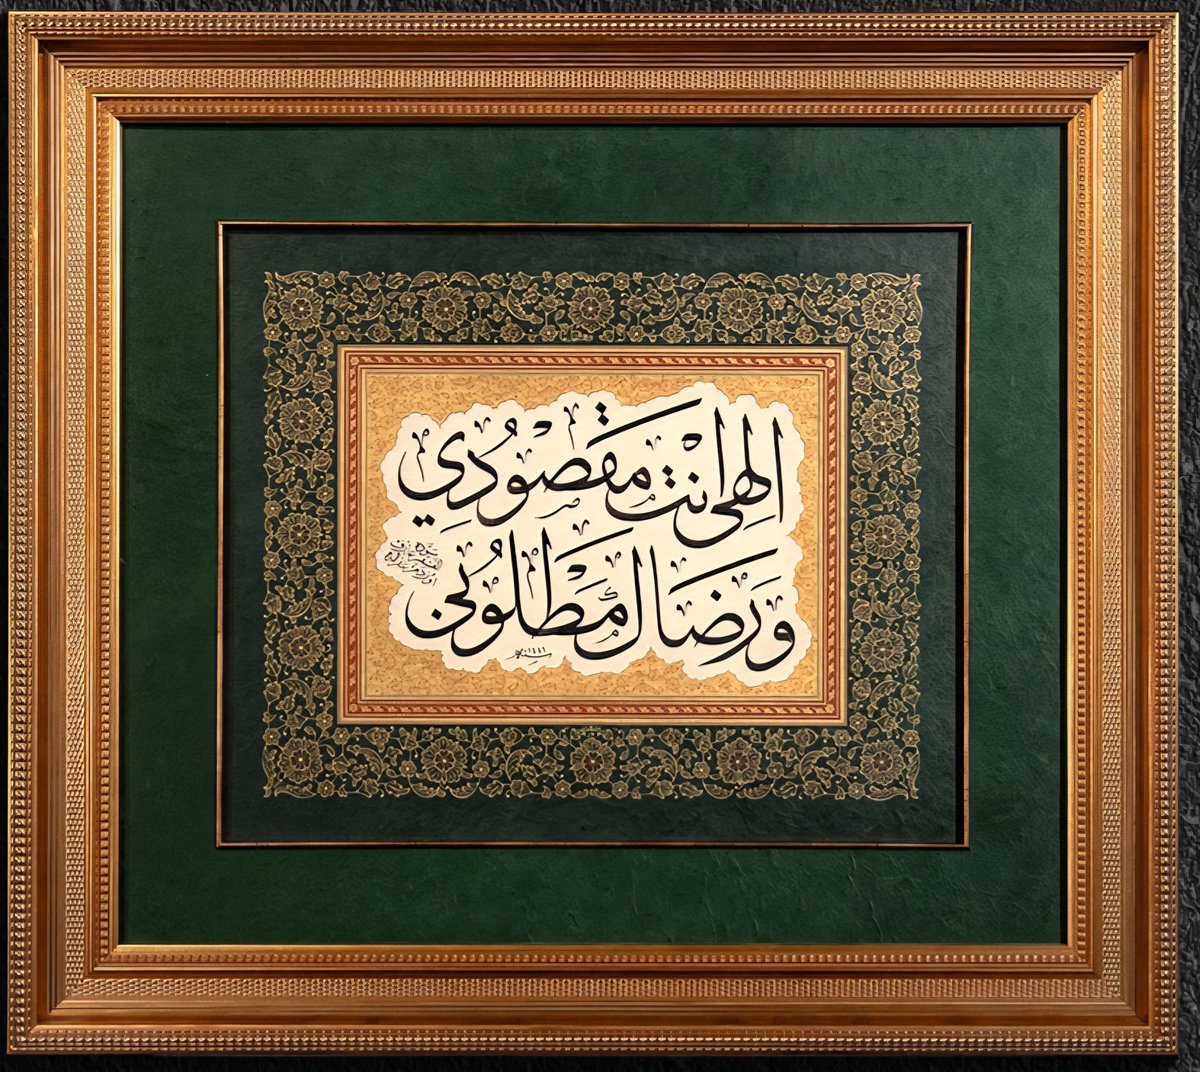 الهي انت مقصودي
ورضاك مطلوبي
سنة ١٤٤١